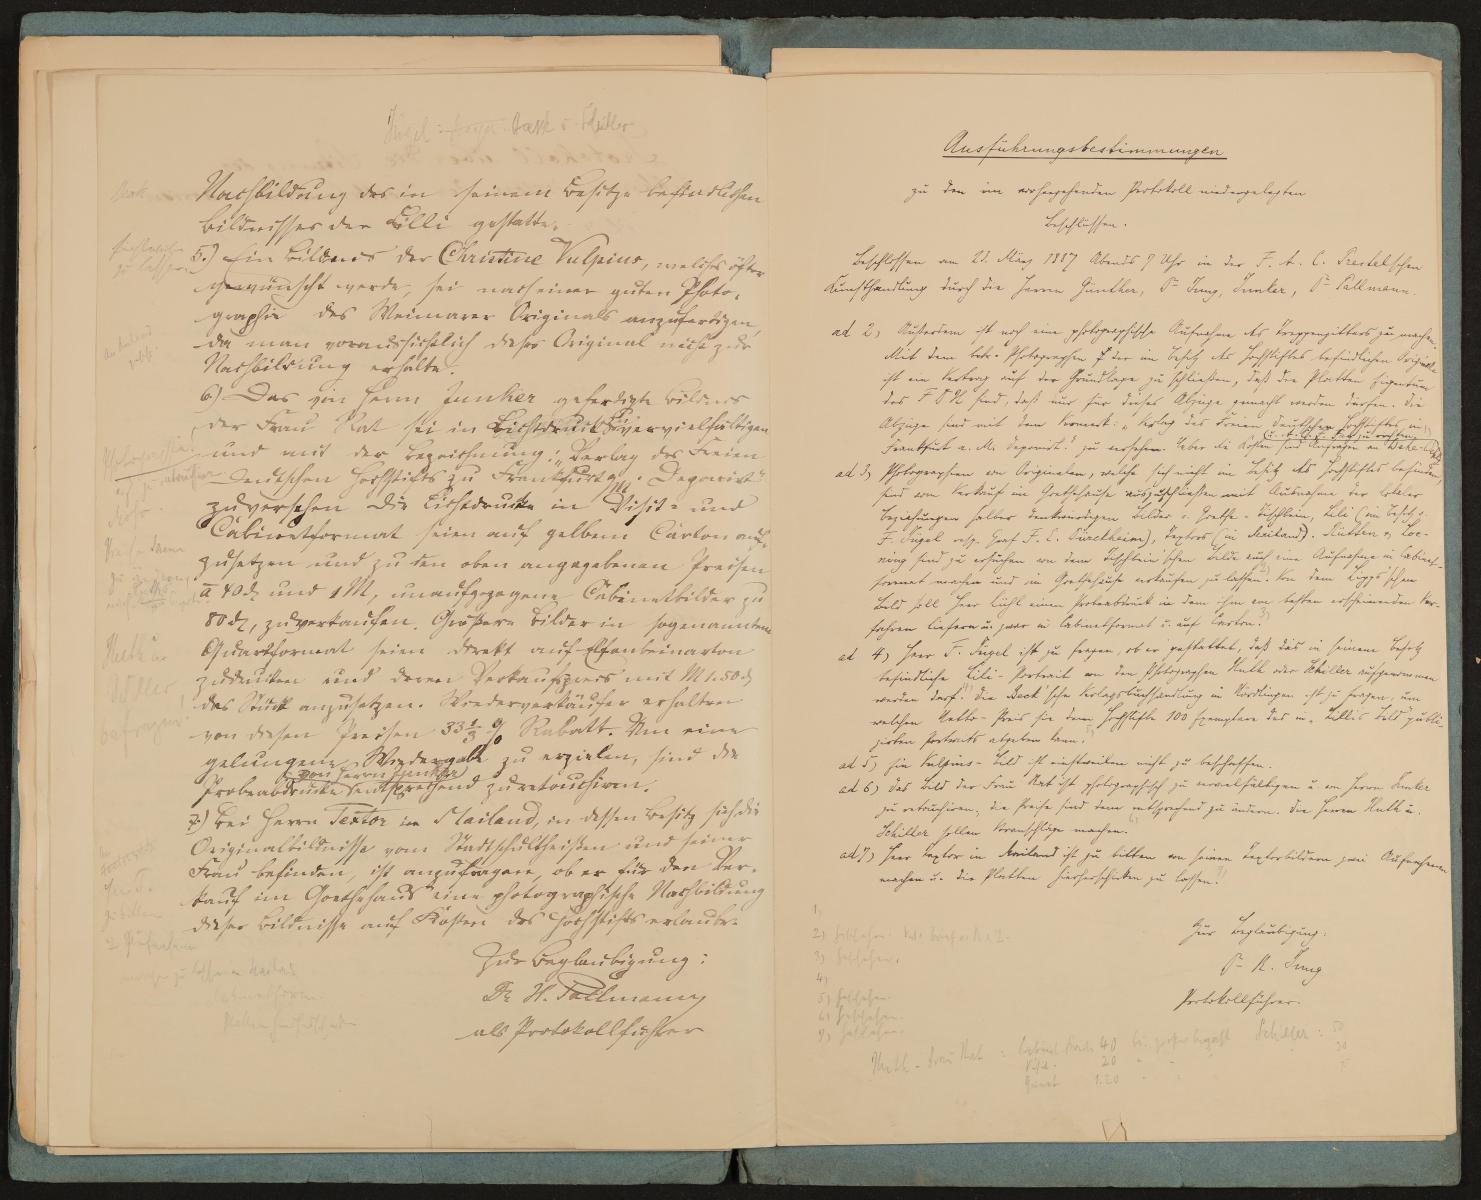 Jügel
Beck u. Schiller
Nachbildung des in seinem Besitze befindlichen
Bildnisses der Lilli gestatte.
5.) Ein Bildnis der Christine Vulpius, welches öfter
gewünscht werde, sei nach einer guten Photo-
graphie des Weimarer Originals anzufertigen,
da man voraussichtlich dieses Original nicht zur
Nachbildung erhalte.
6.) Das von Herrn Junker gefertigte Bildnis
der Frau Rat sei in Lichtdruck zu vervielfältigen
und mit der Bezeichnung: „Verlag des Freien
Deutschen Hochstifts zu Frankfurt a/M. Deponirt"
zu versehen. Die Lichtdrucke in Visit- und
Cabinetformat seien auf gelbem Carton auf-
zusetzen und zu den oben angegebenen Preisen
à 40 ₰ und 1 M, unaufgezogene Cabinetbilder zu
80 ₰, zu verkaufen. Größere Bilder in sogenanntem
Quartformat seien direkt auf Elfenbeincarton
zu drucken und deren Verkaufspreis mit M 1.50 ₰
das Stück anzusetzen. Wiederverkäufer erhalten
von diesen Preisen 33 1/3 % Rabatt. Um eine
gelungene Wiedergabe zu erzielen, sind die
von Herrn Junker
Probeabdrucke entsprechend zu retouchiren.
7.) Bei Herrn Textor in Mailand, in dessen Besitz sich die
Originalbildnisse vom Stadtschultheißen und seiner
Frau befinden, ist anzufragen, ob er für den Ver-
kauf im Goethehaus eine photographische Nachbildung
dieser Bildnisse auf Kosten des Hochstifts erlaube.
Zur Beglaubigung:
Dr. H. Pallmann
als Protokollführer
Ausführungsbestimmungen
zu den im vorhergehenden Protokoll niedergelegten
Beschlüssen.
Beschlossen am 23. März 1887 Abends 7 Uhr in der F. A. C. Prestel'schen
Kunsthandlung durch die Herren Günther, Dr. Jung, Junker, Dr. Pallmann.
ad 2) Außerdem ist noch eine photographische Aufnahme des Treppengitters zu machen.
Mit dem betr. Photographen der im Besitz des Hochstiftes befindlichen Originale
ist ein Vertrag auf der Grundlage zu schließen, daß die Platten Eigentum
des F D H sind, daß nur für dieses Abzüge gemacht werden dürfen. Die
Abzüge sind mit dem Vermerk: „Verlag des Freien Deutschen Hochstiftes in
Frankfurt a. M. Deponirt." zu versehen. Ueber die Kosten sind Anfragen an
ad 3) Photographien von Originalen, welche sich nicht im Besitz des Hochstiftes befinden,
sind vom Verkauf im Goethehause auszuschließen mit Ausnahme der
Beziehungen halber denkwürdigen Bilder v. Goethe - Tischbein, Lili (im Besitz v.
F. Jügel resp. Graf F. E. Dürckheim), Textors (in Mailand). Rütten u. Loe-
ning sind zu ersuchen von dem Tischbein'schen Bilde auch eine Aufnahme in Cabinet-
format machen und im Goethehause verkaufen zu lassen. Von dem Lipps'schen
Bild soll Herr Lichl einen Probeabdruck in dem ihm am besten erscheinenden Ver-
fahren liefern u. zwar in Cabinetformat u. auf Carton.
ad 4) Herr F. Jügel ist zu fragen, ob er gestattet, daß das in seinem Besitz
befindliche Lili-Portrait von den Photographen Huth oder Schiller aufgenommen
werden darf. Die Beck'sche Verlagsbuchhandlung in Nördlingen ist zu fragen, um
welchen Netto-Preis sie dem Hochstifte 100 Exemplare des in „Lillis Bild" publi-
zirten Portraits abgeben kann.
ad 5) Ein Vulpius-Bild ist einstweilen nicht zu beschaffen.
ad 6) Das Bild der Frau Rat ist photographisch zu vervielfältigen u. von Herrn Junker
zu retouchiren, die Preise sind dem entsprechend zu ändern. Die Herren Huth u.
Schiller sollen Voranschläge machen.
ad 7) Herr Textor in Mailand ist zu bitten von seinen Textorbildern zwei Aufnahmen
machen u. die Platten hierherschicken zu lassen.
Zur Beglaubigung:
Dr. R. Jung
Protokollführer.
1)
2) Geschehen.
3) Geschehen.
4)
5) Geschehen.
6) Geschehen.
7) Geschehen.
Huth - Frau Rat : Cabinet 40
Schiller : 50
Visit. 20
30
Quart 1.20